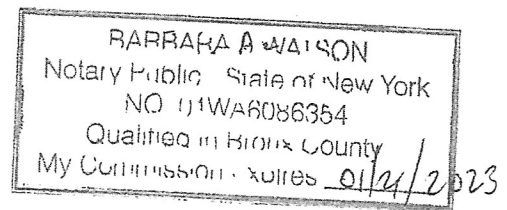 BARBARA A WATSON
Notary Public State of New York
NO 01WA6086354
Qualified in Bronx County
My Commission Expires 01/21/2023